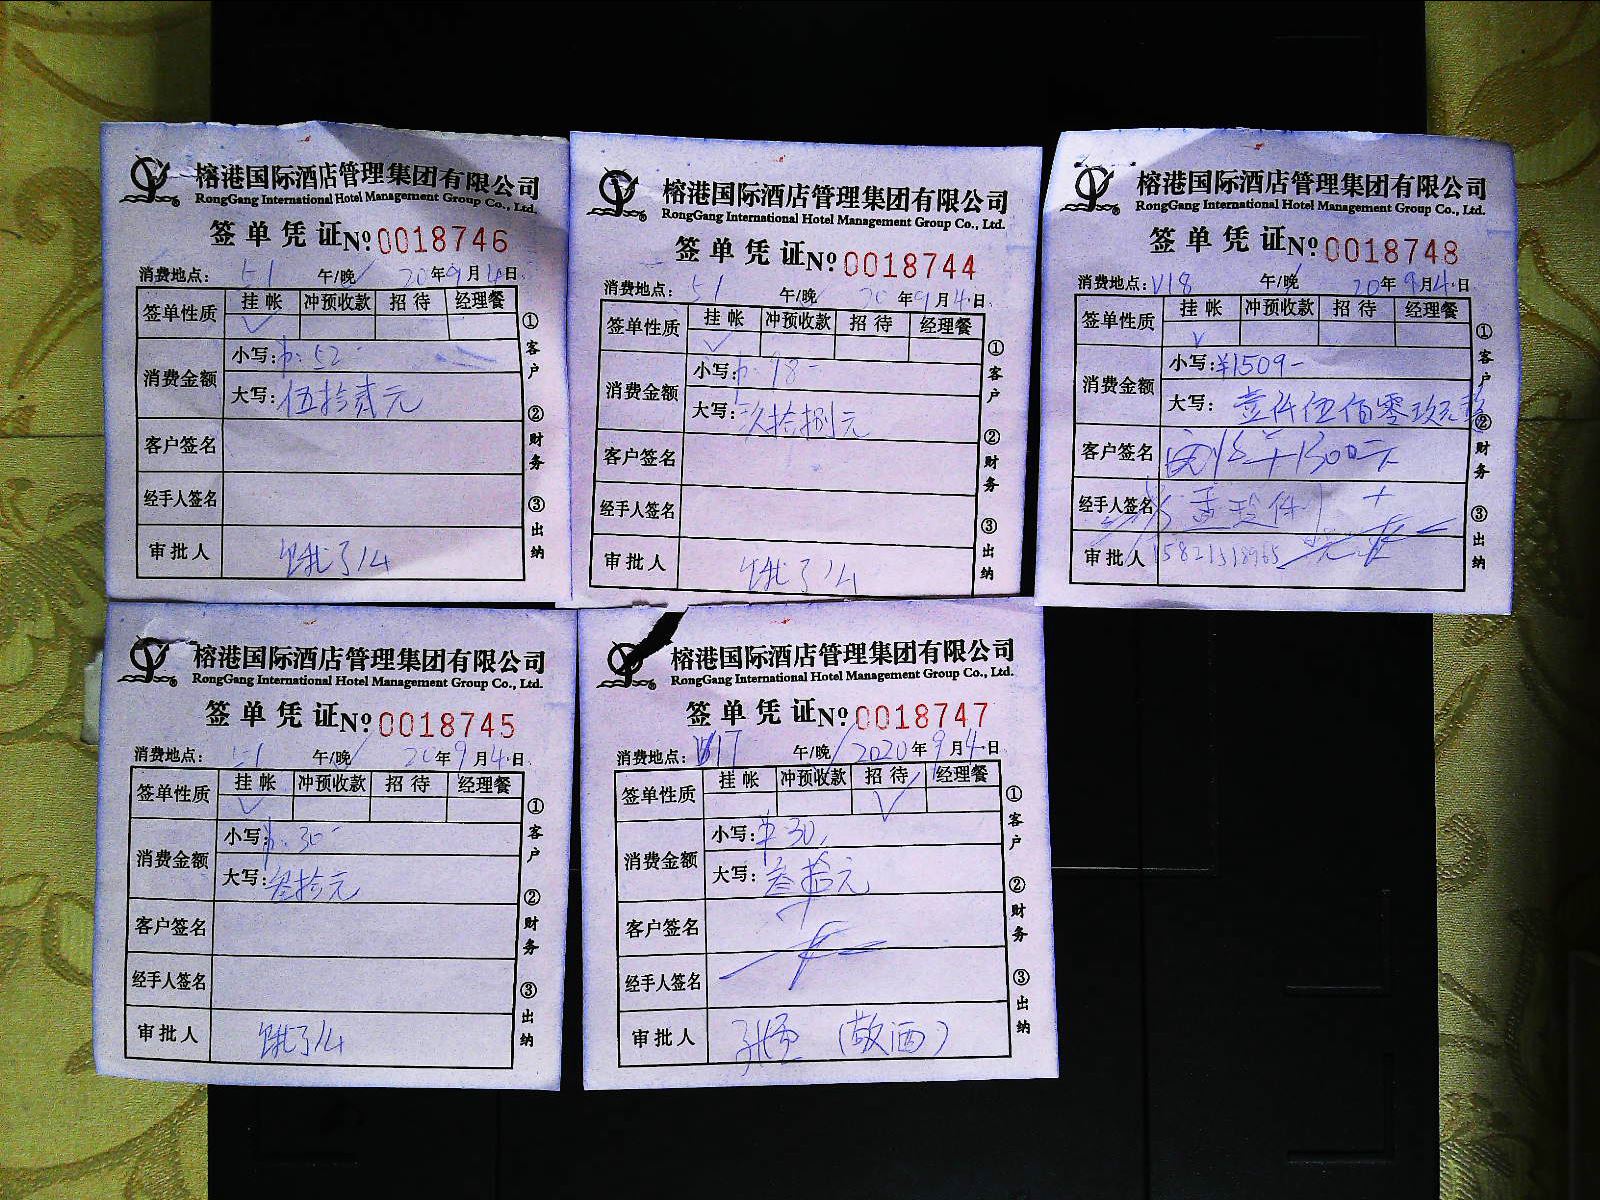 榕港国际酒店管理集团有限公司
RongGang International Hotel Management Group Co., Ltd.
签单凭证 Nº 0018746
消费地点: 51 午/晚 20年9月4日
签单性质 挂帐 冲预收款 招待 经理餐
消费金额 小写: 52-
大写: 伍拾贰元
客户签名
经手人签名
审批人 饿了么
①客户 ②财务 ③出纳
榕港国际酒店管理集团有限公司
RongGang International Hotel Management Group Co., Ltd.
签单凭证 Nº 0018744
消费地点: 51 午/晚 20年9月4日
签单性质 挂帐 冲预收款 招待 经理餐
消费金额 小写: 98-
大写: 玖拾捌元
客户签名
经手人签名
审批人 饿了么
①客户 ②财务 ③出纳
榕港国际酒店管理集团有限公司
RongGang International Hotel Management Group Co., Ltd.
签单凭证 Nº 0018748
消费地点: V18 午/晚 20年9月4日
签单性质 挂帐 冲预收款 招待 经理餐
消费金额 小写: ¥1509-
大写: 壹仟伍佰零玖元整
客户签名
经手人签名
审批人
①客户 ②财务 ③出纳
榕港国际酒店管理集团有限公司
RongGang International Hotel Management Group Co., Ltd.
签单凭证 Nº 0018745
消费地点: 51 午/晚 20年9月4日
签单性质 挂帐 冲预收款 招待 经理餐
消费金额 小写: 30-
大写: 叁拾元
客户签名
经手人签名
审批人 饿了么
①客户 ②财务 ③出纳
榕港国际酒店管理集团有限公司
RongGang International Hotel Management Group Co., Ltd.
签单凭证 Nº 0018747
消费地点: V17 午/晚 2020年9月4日
签单性质 挂帐 冲预收款 招待 经理餐
消费金额 小写: 30
大写: 叁拾元
客户签名
经手人签名
审批人 (敬酒)
①客户 ②财务 ③出纳